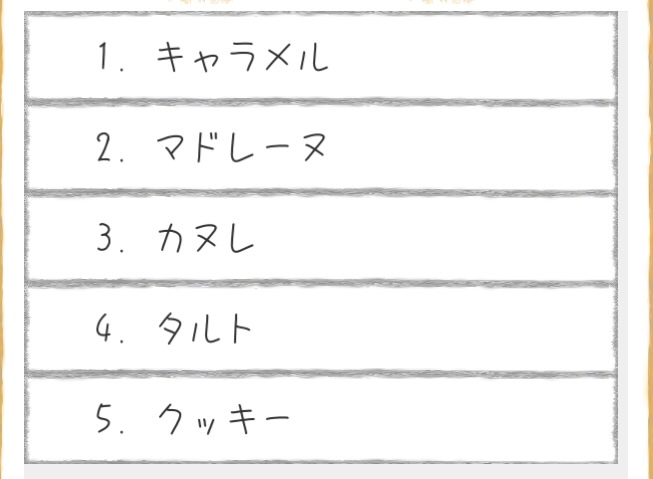 1. キャラメル
2. マドレーヌ
3. カヌレ
4. タルト
5. クッキー